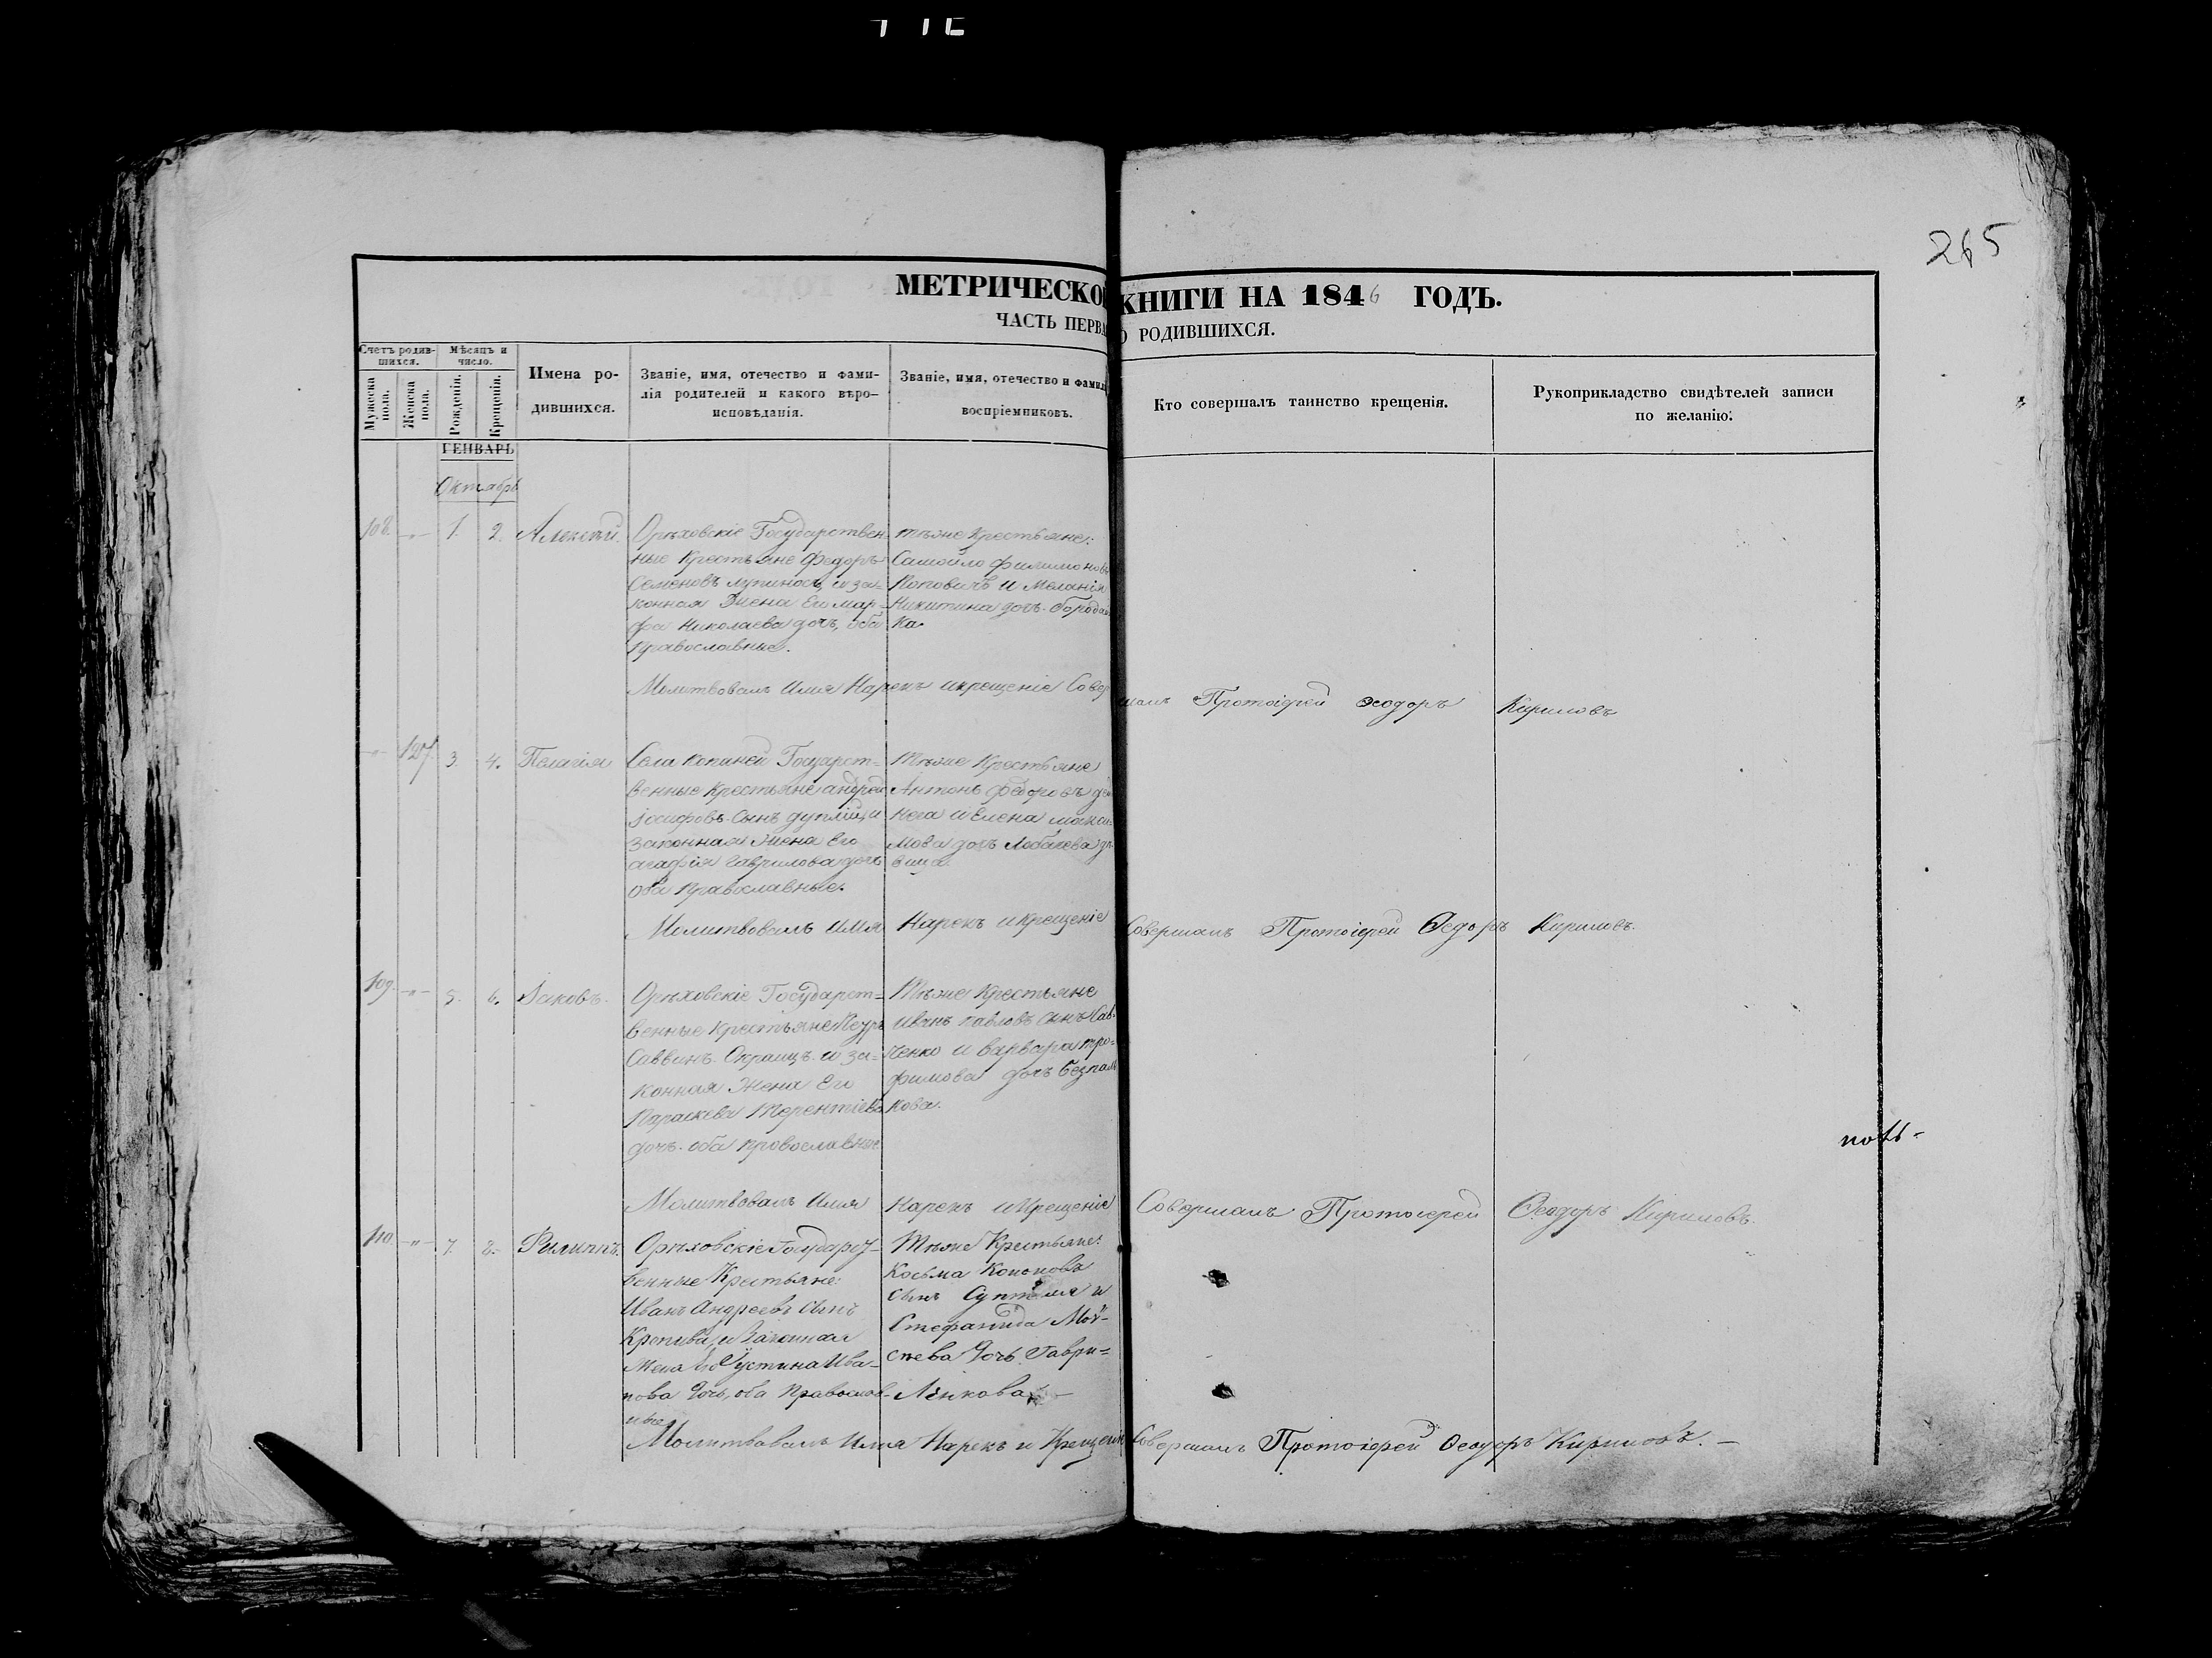 265
МЕТРИЧЕСКО КНИГИ НА 1846 ГОДЪ.
ЧАСТЬ ПЕРВА О РОДИВШИХСЯ.
Счетъ родив-
шихся.
Мѣсяцъ и
число.
Мужеска
пола.
Женска
пола.
Рожденія.
Крещенія.
Имена ро-
дившихся.
Званіе, имя, отечество и фами-
лія родителей и какого вѣро-
исповѣданія.
Званіе, имя, отечество и фамил
воспріемниковъ.
Кто совершалъ таинство крещенія.
Рукоприкладство свидѣтелей записи
по желанію.
ГЕНВАРЬ
Октябрь
108. -"- 1. 2. Алексѣй.
Орѣховскіе Государствен-
ные Крестьяне Федоръ
Семеновъ и за-
конная Жена Его Мар-
фа Николаева дочь, оба
Православные.
тѣже Крестьяне:
Самойло Филимоновъ
Поповичъ и Меланія
Никитина дочь
ка.
Молитвовалъ Имя Нарекъ и крещеніе Совер
шалъ Протоіерей Ѳеодоръ Кириловъ
-"- 127. 3. 4. Пелагія
Села Копаней Государст-
венные Крестьяне андрей
Іосифовъ Сынъ и
законная Жена Его
агафія Гаврилова дочь
оба Православные.
Тѣже Крестьяне
Антонъ Федоровъ
и Елена макси-
мова дочь Лобачева дѣ
вица.
Молитвовалъ Имя Нарекъ и Крещеніе
Совершалъ Протоіерей Ѳедоръ Кириловъ.
109. -"- 5. 6. Іаковъ.
Орѣховскіе Государст-
венные крестьяне Петръ
Саввинъ и за-
конная Жена Его
Параскева Терентіева
дочь. оба православные
Тѣже Крестьяне
Иванъ Павловъ сынъ Сав-
ченко и Варвара тро-
фимова дочь Безпаль
кова.
Молитвовалъ Имя Нарекъ и Крещеніе
Совершалъ Протоіерей Ѳеодоръ Кириловъ.
110. -"- 7. 8. Филиппъ.
Орѣховскіе Государст-
венные Крестьяне:
Иванъ Андреевъ сынъ
Кропива, и Законная
Жена Его Устина Ива-
нова дочь, оба Православ-
ные
Тѣже Крестьяне:
Косьма Кононовъ
сынъ и
Стефанида Мой-
сеева дочь Гаври-
ленкова. —
Молитвовалъ Имя Нарекъ и Крещеніе
Совершалъ Протоіерей Ѳеодоръ Кириловъ. —